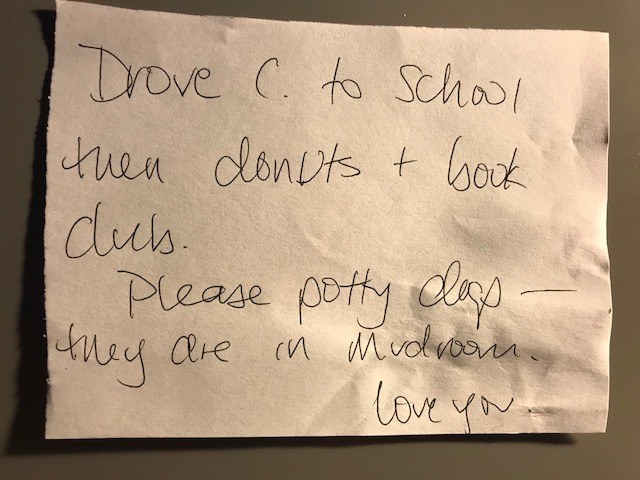 Drove C. to School
then donuts + book
club.
Please potty dogs —
they are in Mudroom.
love you.